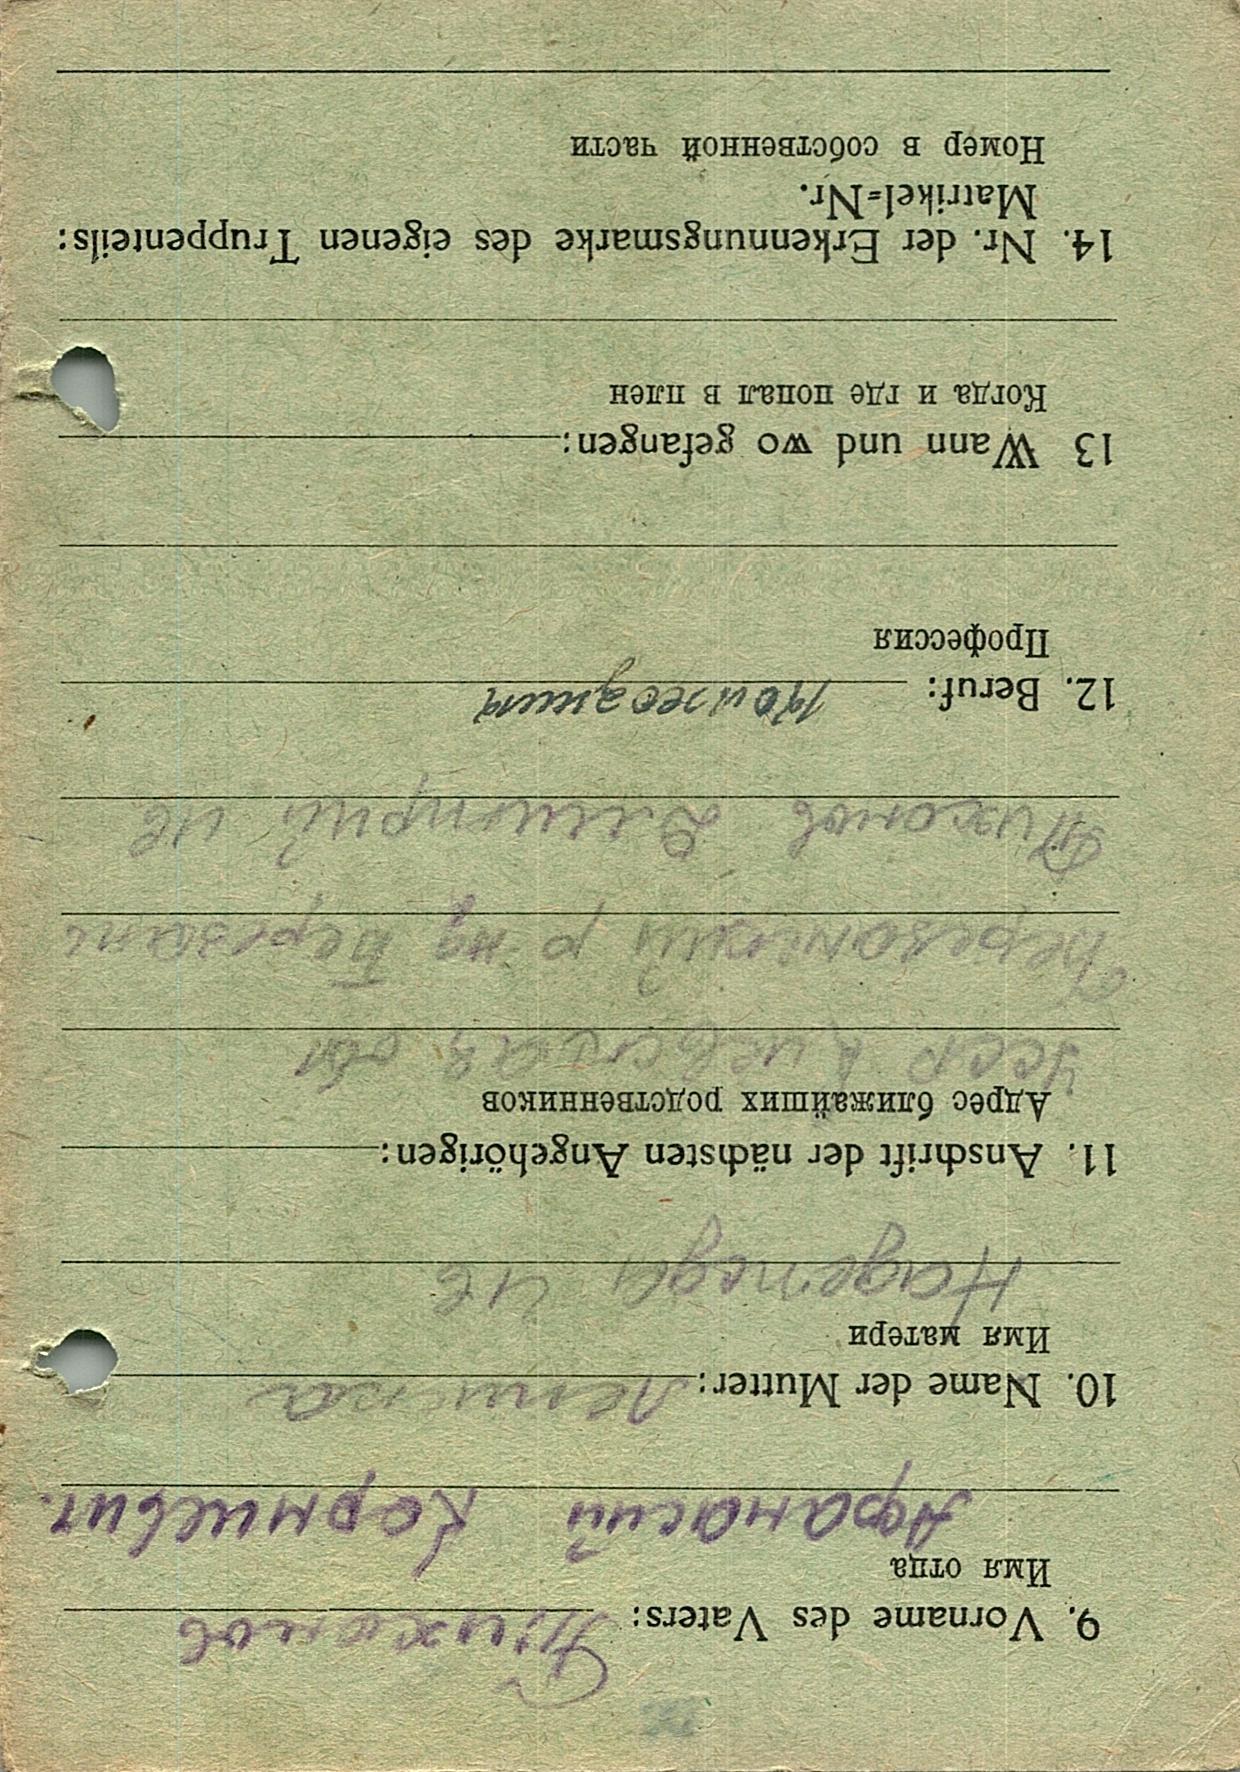 9. Vorname des Vaters: Тихонов
Имя отца
Афанасий Корниевич.
10. Name der Mutter:
Имя матери
Надежда ив
11. Anschrift der nächsten Angehörigen:
Адрес ближайших родственников
Усср Киевская обл
Березанский р-нд Березань
Тихонов Дмитрий ив
12. Beruf:
Профессия
13 Wann und wo gefangen:
Когда и где попал в плен
14. Nr. der Erkennungsmarke des eigenen Truppenteils:
Matrikel=Nr.
Номер в собственной части